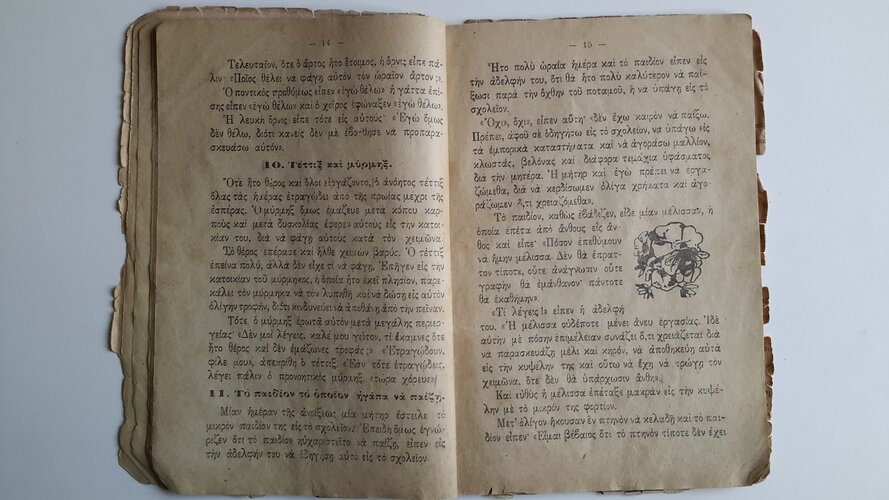 — 14 —
Τελευταῖον, ὅτε ὁ ἄρτος ἦτο ἕτοιμος, ἡ ὄρνις εἶπε πά-
λιν· «Ποῖος θέλει νὰ φάγῃ αὐτὸν τὸν ὡραῖον ἄρτον;»
Ὁ ποντικὸς προθύμως εἶπεν «ἐγὼ θέλω» ἡ γάττα ἐπί-
σης εἶπεν «ἐγὼ θέλω» καὶ ὁ χοῖρος ἐφώναξεν «ἐγὼ θέλω.
Ἡ λευκὴ ὄρνις εἶπε τότε εἰς αὐτούς· «Ἐγὼ ὅμως
δὲν θέλω, διότι κανεὶς δὲν μὲ ἐβοήθησε νὰ προπαρα-
σκευάσω αὐτόν».
10. Τέττιξ καὶ μύρμηξ.
Ὅτε ἦτο θέρος καὶ ὅλοι εἰργάζοντο, ὁ ἀνόητος τέττιξ
ὅλας τὰς ἡμέρας ἐτραγώδει ἀπὸ τῆς πρωίας μέχρι τῆς
ἑσπέρας. Ὁ μύρμηξ ὅμως ἐμάζευε μετὰ κόπου καρ-
ποὺς καὶ μετὰ δυσκολίας ἔφερεν αὐτοὺς εἰς τὴν κατοι-
κίαν του, διὰ νὰ φάγῃ αὐτοὺς κατὰ τὸν χειμῶνα.
Τὸ θέρος ἐπέρασε καὶ ἦλθε χειμὼν βαρύς. Ὁ τέττιξ
ἐπείνα πολύ, ἀλλὰ δὲν εἶχε τί νὰ φάγῃ. Ἐπῆγεν εἰς τὴν
κατοικίαν τοῦ μύρμηκος, ἡ ὁποία ἦτο ἐκεῖ πλησίον, παρε-
κάλει τὸν μύρμηκα νὰ τὸν λυπηθῇ καὶ νὰ δώσῃ εἰς αὐτὸν
ὀλίγην τροφήν, διότι κινδυνεύει νὰ ἀποθάνῃ ἀπὸ τὴν πεῖναν.
Τότε ὁ μύρμηξ ἐρωτᾷ αὐτὸν μετὰ μεγάλης περιερ-
γείας· «Δὲν μοὶ λέγεις, καλέ μου γεῖτον, τί ἔκαμνες ὅτε
ἦτο θέρος καὶ δὲν ἐμάζωνες τροφάς;» «Ἐτραγώδουν,
φίλε μου», ἀπεκρίθη ὁ τέττιξ. «Ἐὰν τότε ἐτραγώδεις,
λέγει πάλιν ὁ προνοητικὸς μύρμηξ, τώρα χόρευε».
11. Τὸ παιδίον τὸ ὁποῖον ἠγάπα νὰ παίζῃ.
Μίαν ἡμέραν τῆς ἀνοίξεως μία μήτηρ ἔστειλε τὸ
μικρὸν παιδίον της εἰς τὸ σχολεῖον. Ἐπειδὴ ὅμως ἐγνώ-
ριζεν ὅτι τὸ παιδίον ηὐχαριστεῖτο νὰ παίζῃ, εἶπεν εἰς
τὴν ἀδελφήν του νὰ ὁδηγήσῃ αὐτὸ εἰς τὸ σχολεῖον.
— 15 —
Ἦτο πολὺ ὡραία ἡμέρα καὶ τὸ παιδίον εἶπεν εἰς
τὴν ἀδελφήν του, ὅτι θὰ ἦτο πολὺ καλύτερον νὰ παί-
ξωσι παρὰ τὴν ὄχθην τοῦ ποταμοῦ, ἢ νὰ ὑπάγῃ εἰς τὸ
σχολεῖον.
«Ὄχι, ὄχι», εἶπεν αὕτη· «δὲν ἔχω καιρὸν νὰ παίξω.
Πρέπει, ἀφοῦ σὲ ὁδηγήσω εἰς τὸ σχολεῖον, νὰ ὑπάγω εἰς
τὰ ἐμπορικὰ καταστήματα καὶ νὰ ἀγοράσω μαλλίον,
κλωστάς, βελόνας καὶ διάφορα τεμάχια ὑφάσματος
διὰ τὴν μητέρα. Ἡ μήτηρ καὶ ἐγὼ πρέπει νὰ ἐργα-
ζώμεθα, διὰ νὰ κερδίσωμεν ὀλίγα χρήματα καὶ ἀγο-
ράζωμεν ὅ,τι χρειαζόμεθα».
Τὸ παιδίον, καθὼς ἐβάδιζεν, εἶδε μίαν μέλισσαν, ἡ
ὁποία ἐπέτα ἀπὸ ἄνθους εἰς ἄν-
θος καὶ εἶπε· «Πόσον ἐπεθύμουν
νὰ ἤμην μέλισσα. Δὲν θὰ ἔπρατ-
τον τίποτε, οὔτε ἀνάγνωσιν οὔτε
γραφὴν θὰ ἐμάνθανον· πάντοτε
θὰ ἐκαθήμην».
«Τί λέγεις!» εἶπεν ἡ ἀδελφή
του. «Ἡ μέλισσα οὐδέποτε μένει ἄνευ ἐργασίας. Ἰδὲ
αὐτὴν μὲ πόσην ἐπιμέλειαν συνάζει ὅ,τι χρειάζεται διὰ
νὰ παρασκευάζῃ μέλι καὶ κηρόν, νὰ ἀποθηκεύῃ αὐτὰ
εἰς τὴν κυψέλην της καὶ οὕτω νὰ ἔχῃ νὰ τρώγῃ τὸν
χειμῶνα, ὅτε δὲν θὰ ὑπάρχωσιν ἄνθη».
Καὶ εὐθὺς ἡ μέλισσα ἐπέταξε μακρὰν εἰς τὴν κυψέ-
λην μὲ τὸ μικρόν της φορτίον.
Μετ' ὀλίγον ἤκουσαν ἓν πτηνὸν νὰ κελαδῇ καὶ τὸ παι-
δίον εἶπεν· «Εἶμαι βέβαιος ὅτι τὸ πτηνὸν τίποτε δὲν ἔχει